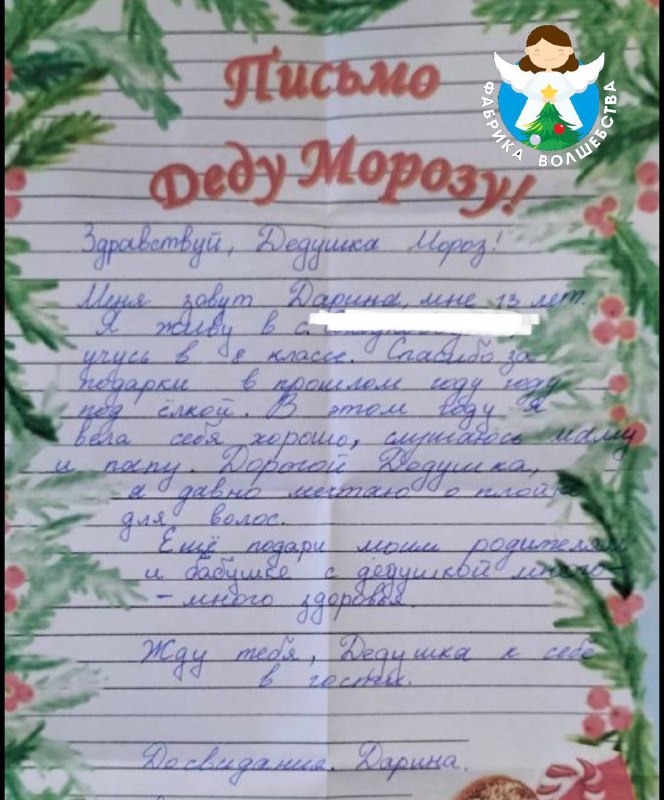 Письмо
Деду Морозу!
ФАБРИКА ВОЛШЕБСТВА
Здравствуй, Дедушка Мороз!
Меня зовут Дарина, мне 13 лет.
Я живу в с.
учусь в 8 классе. Спасибо за
подарки в прошлом году году
под ёлкой. В этом году я
вела себя хорошо, слушаюсь маму
и папу. Дорогой Дедушка,
я давно мечтаю о плойке
для волос.
Ещё подари моим родителям
и бабушке с дедушкой много-
-много здоровья.
Жду тебя, Дедушка к себе
в гости.
Досвидания. Дарина.